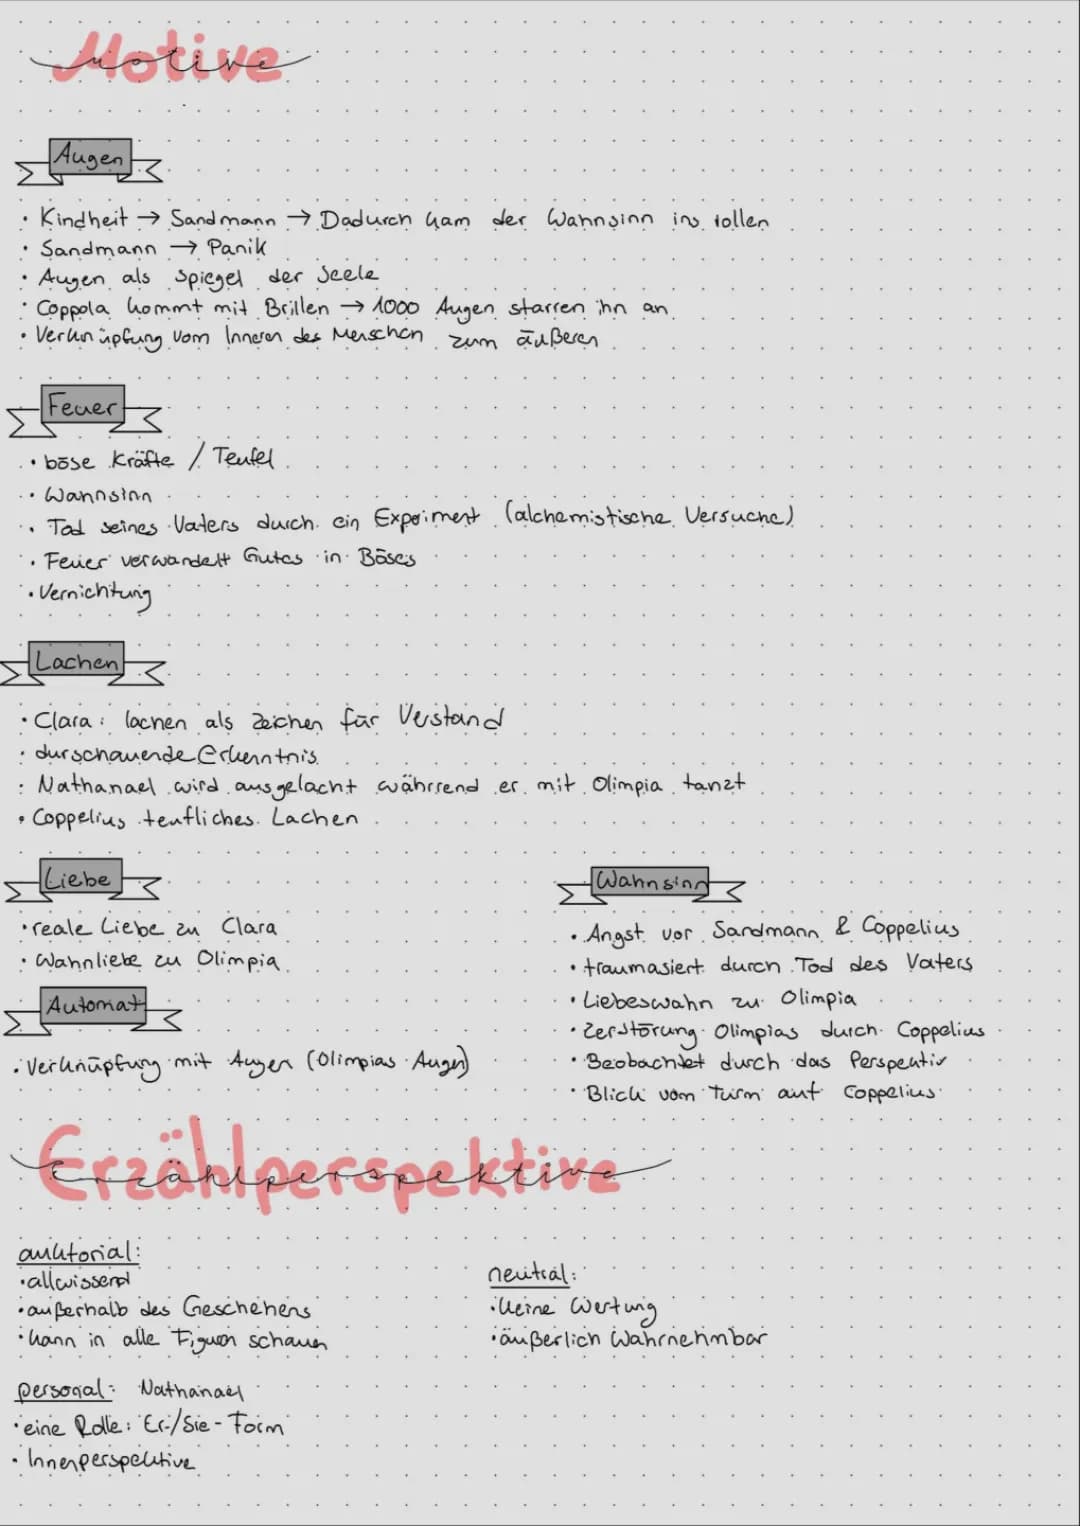 Motive
Augen
· Kindheit → Sandmann → Dadurch kam der Wahnsinn ins rollen
· Sandmann → Panik
· Augen als Spiegel der Seele
· Coppola kommt mit Brillen → 1000 Augen starren ihn an.
· Verknüpfung vom Inneren des Menschen zum äußeren
Feuer
· böse Kräfte / Teufel
· Wahnsinn
· Tod seines Vaters durch ein Expeiment (alchemistische Versuche)
· Feuer verwandelt Gutes in Böses
· Vernichtung
Lachen
· Clara: lachen als Zeichen für Verstand
· durschauende Erkenntnis
· Nathanael wird ausgelacht währrend er mit Olimpia tanzt
· Coppelius teufliches Lachen
Liebe
· reale Liebe zu Clara
· Wahnliebe zu Olimpia
Automat
· Verknüpfung mit Augen (Olimpias Augen)
Wahnsinn
· Angst vor Sandmann & Coppelius
· traumasiert durch Tod des Vaters
· Liebeswahn zu Olimpia
· Zerstörung Olimpias durch Coppelius
· Beobachtet durch das Perspektiv
· Blick vom Turm auf Coppelius
Erzählperspektive
auktorial:
· allwissend
· außerhalb des Geschehens
· kann in alle Figuren schauen
neutral:
· keine Wertung
· äußerlich Wahrnehmbar
personal: Nathanael
· eine Rolle: Er-/Sie-Form
· Innenperspektive